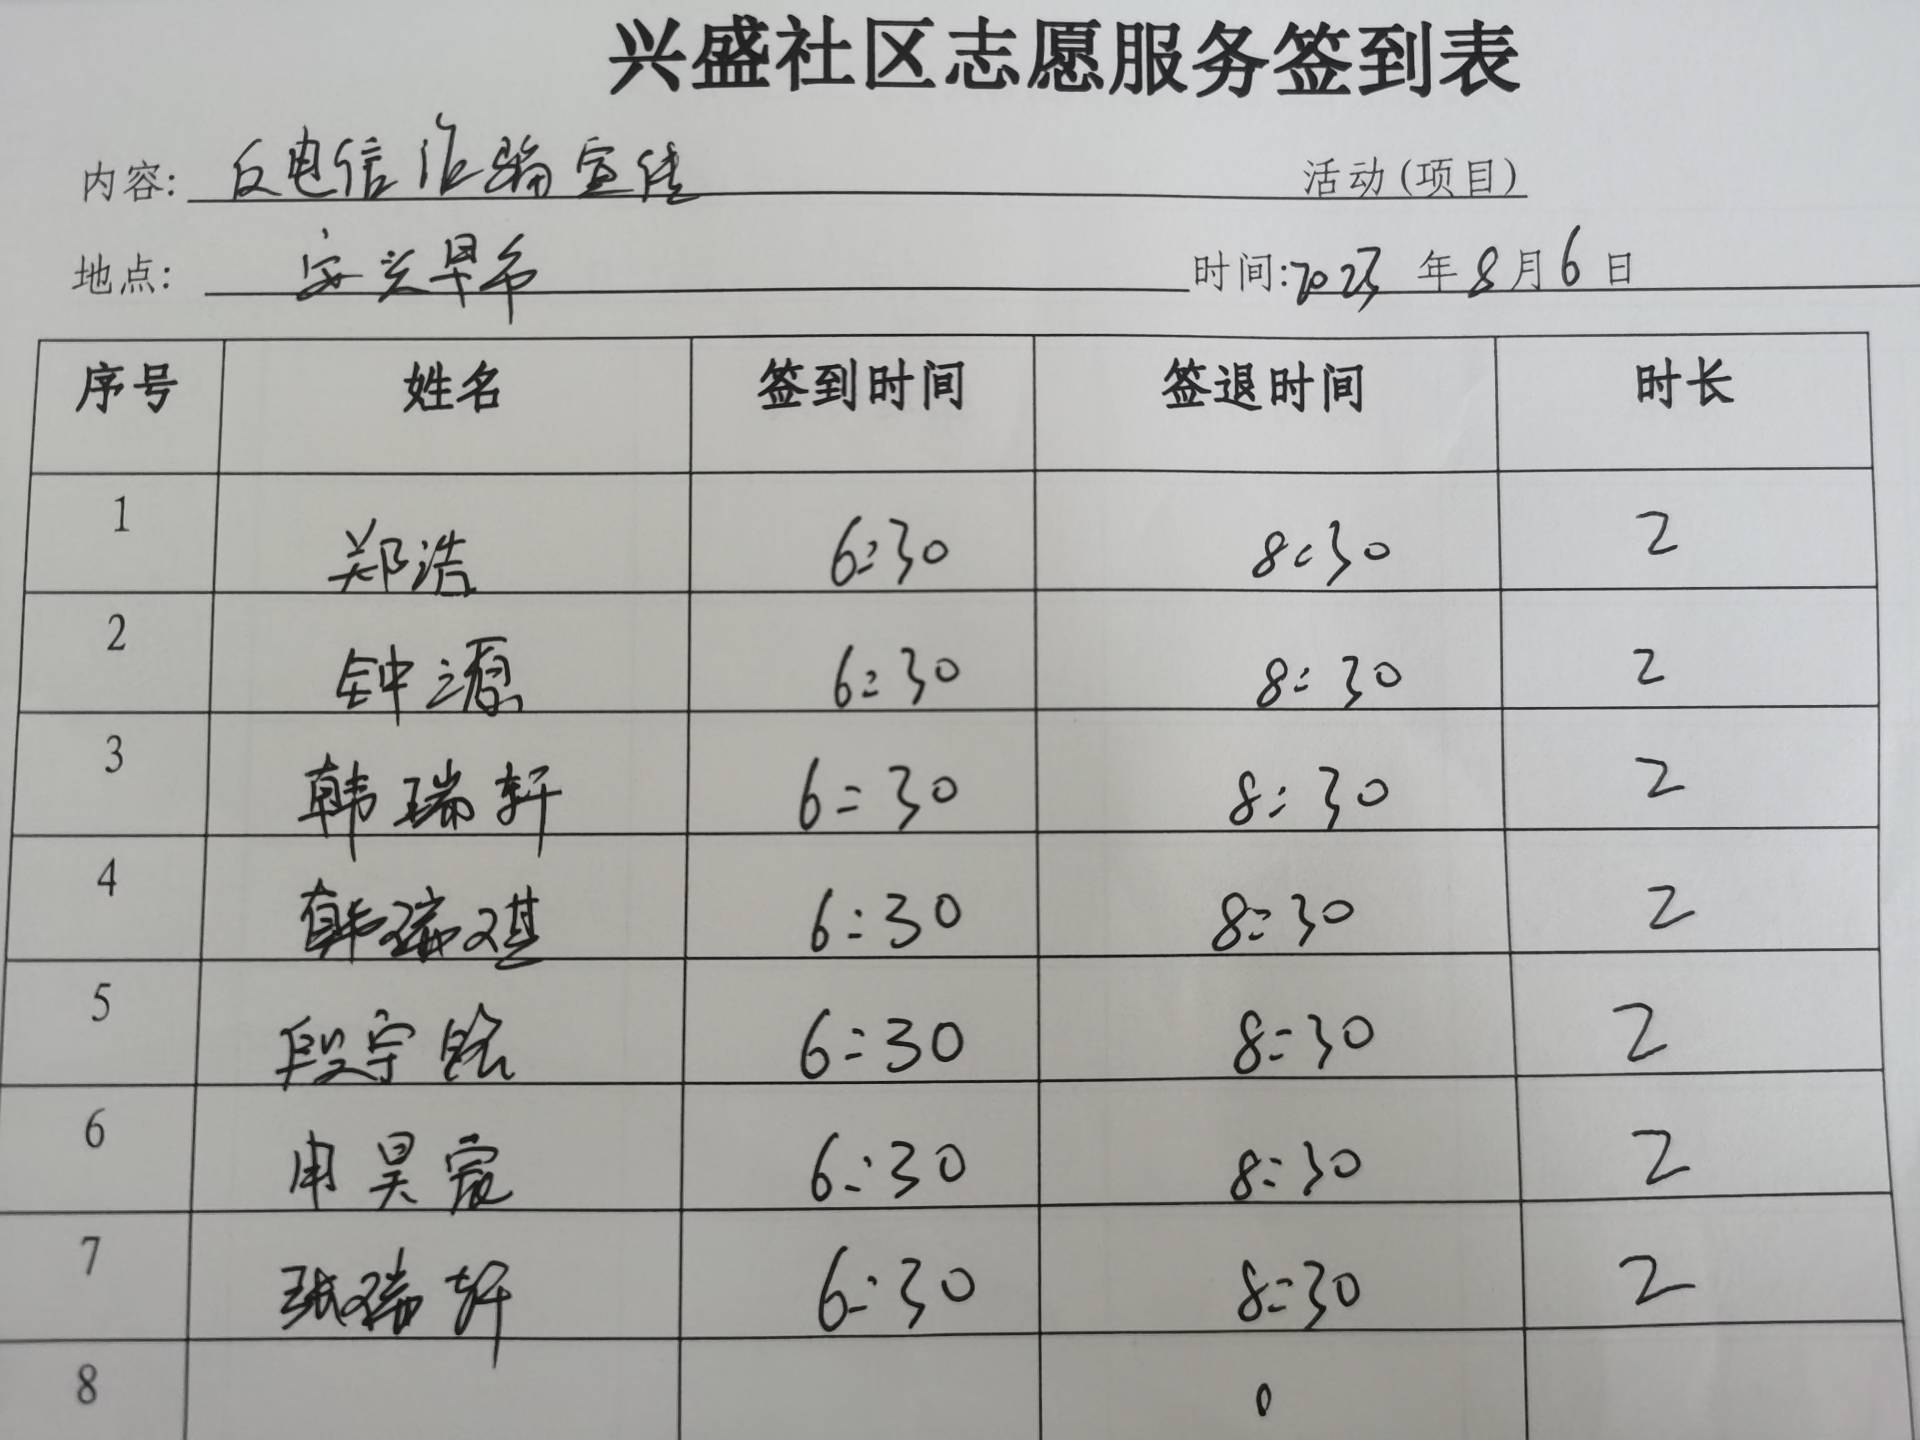 兴盛社区志愿服务签到表
内容: 反电信诈骗宣传 活动(项目)
地点: 安兴早市 时间:2023 年 8 月 6 日
序号 姓名 签到时间 签退时间 时长
1 郑浩 6:30 8:30 2
2 钟源 6:30 8:30 2
3 韩瑞轩 6:30 8:30 2
4 韩瑞琪 6:30 8:30 2
5 段宇铭 6:30 8:30 2
6 申昊 6:30 8:30 2
7 张瑞轩 6:30 8:30 2
8